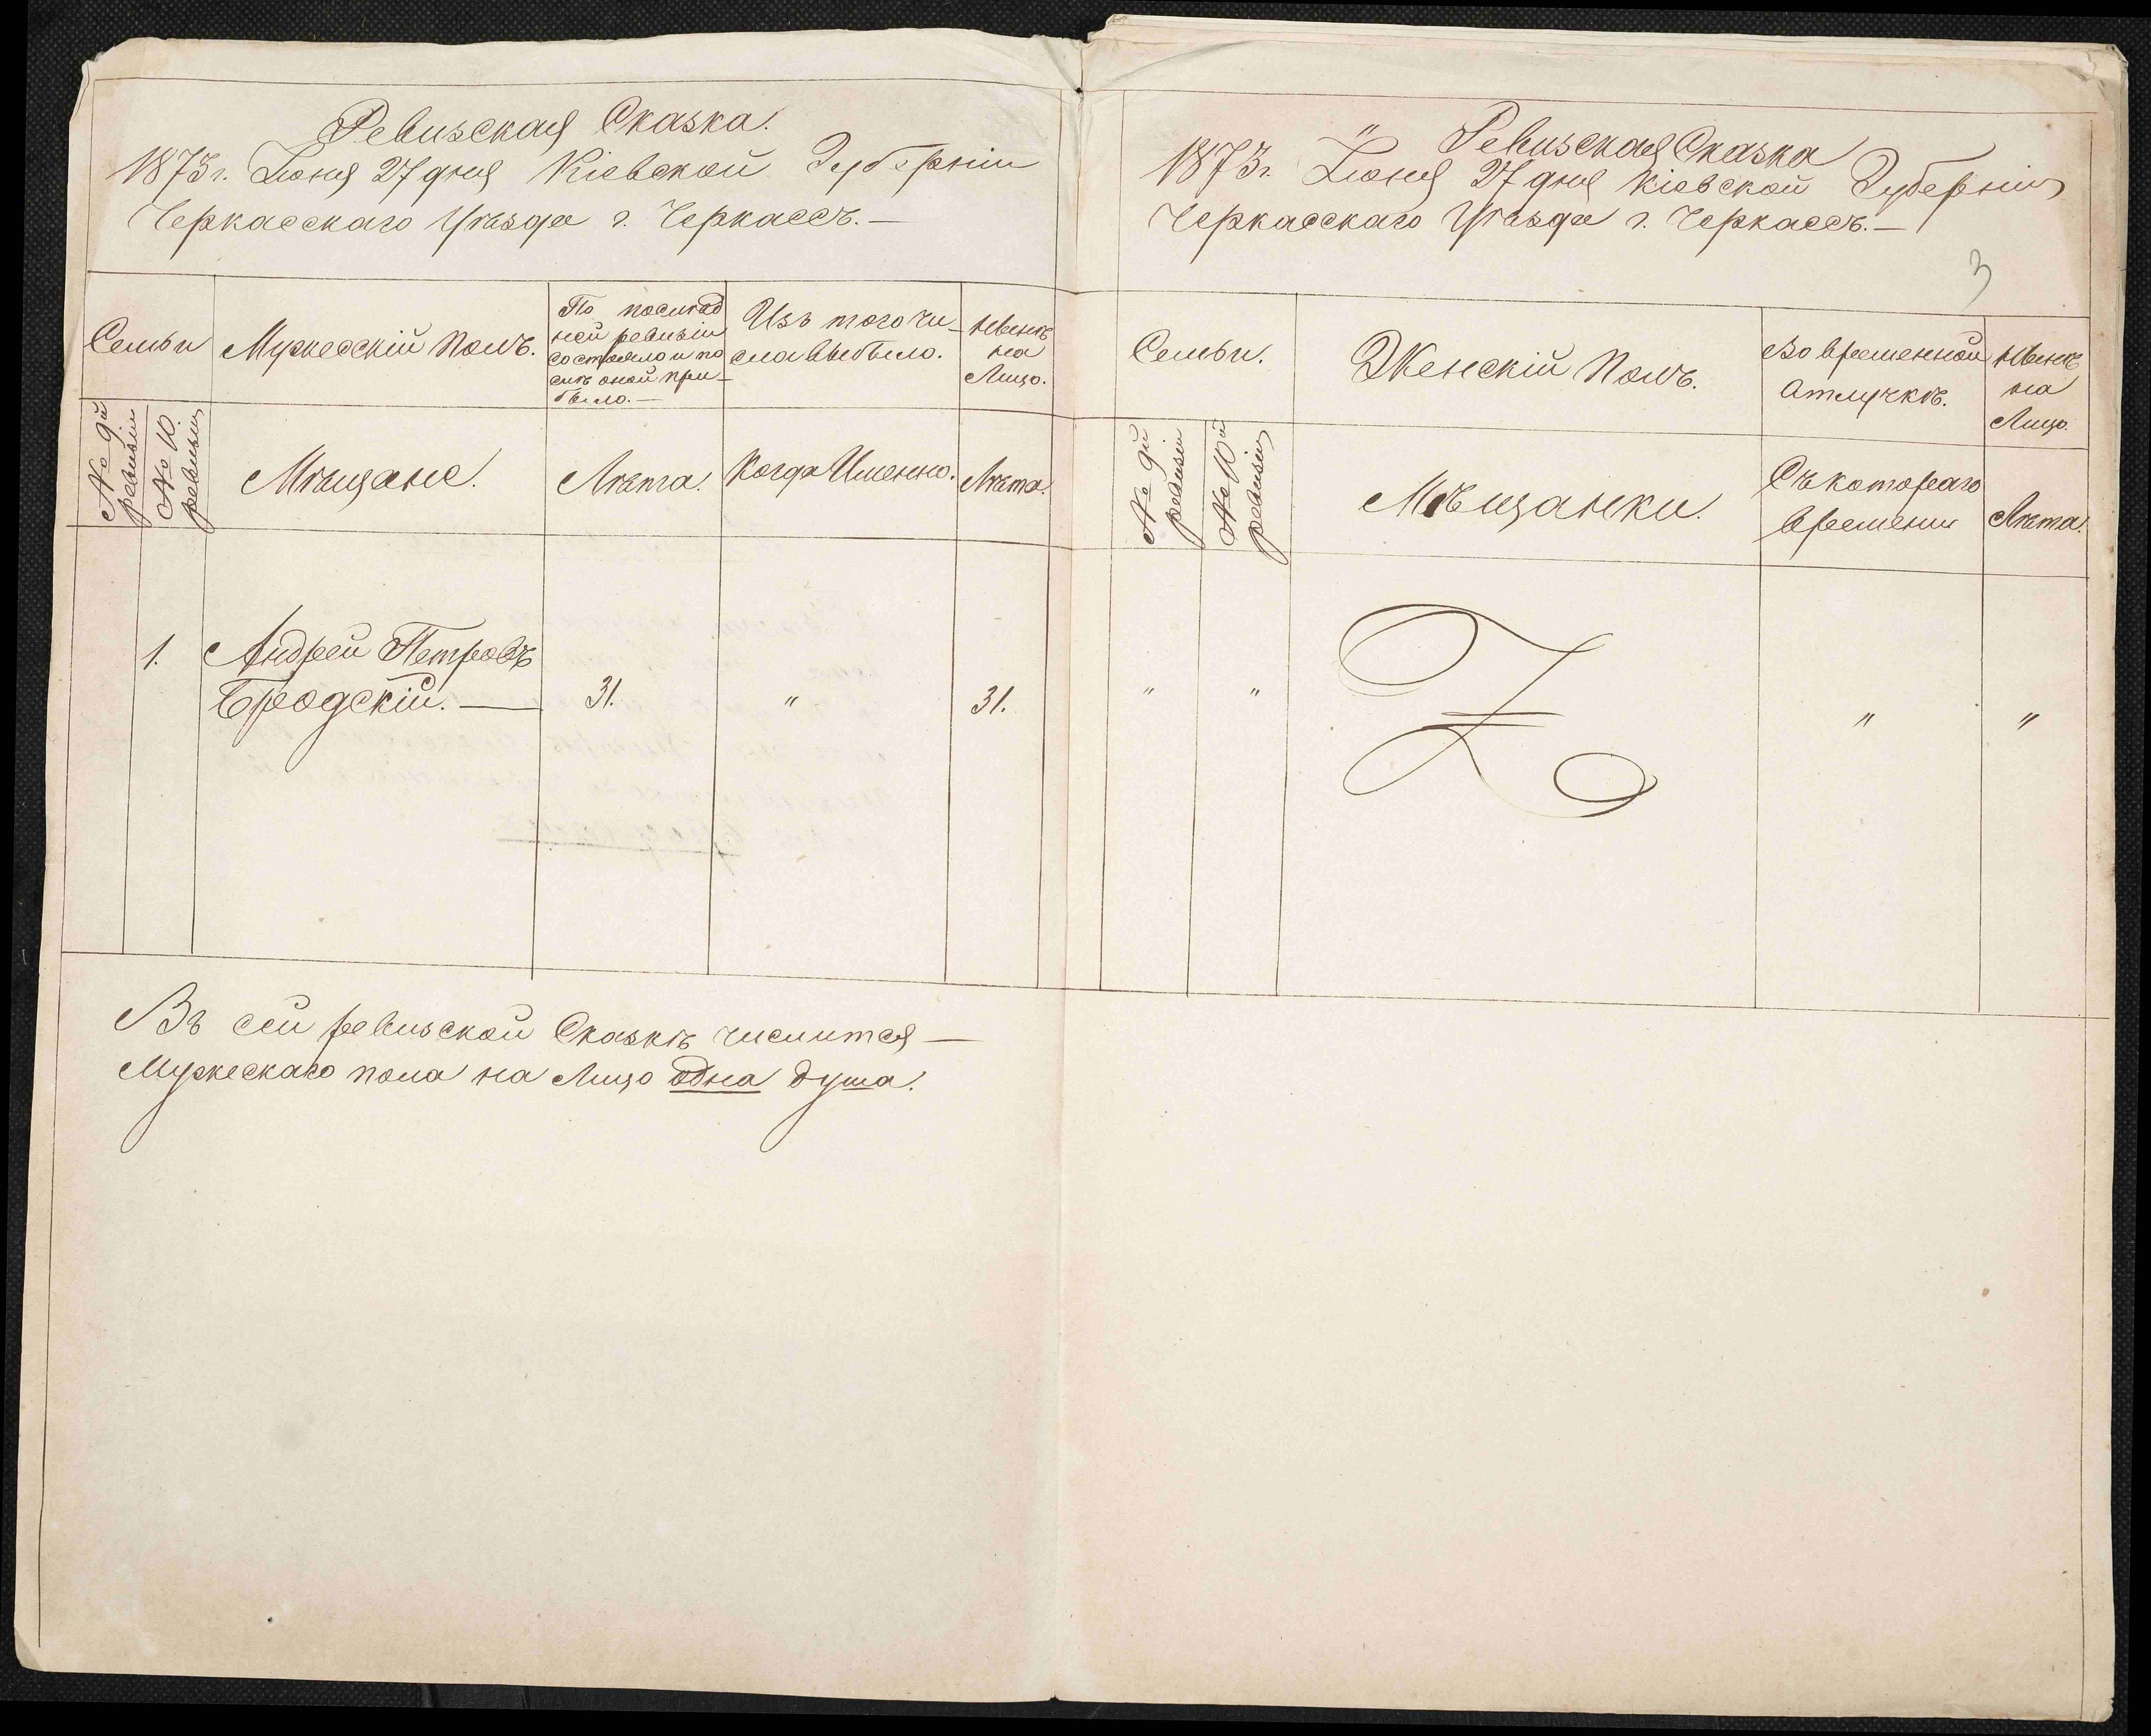 Ревизская Сказка.
1873 г. Іюня 27 дня Кіевской Губерніи
Черкасскаго Уѣзда г. Черкассъ. —
Семьи
Мужесскій Полъ.
По послѣд
ней ревизіи
состояло и по
слѣ оной при-
было. —
Изъ того чи-
сла выбыло.
Нынѣ
на
Лицо.
№ 9й
ревизіи
№ 10.
ревизіи
Мѣщане.
Лѣта.
Когда Именно.
Лѣта.
1.
Андрей Петровъ
Бродскій. —
31.
"
31.
Въ сей ревизской Сказкѣ числится —
Мужескаго пола на Лицо одна душа.
Ревизская Сказка
1873 г. Іюня 27 дня Кіевской Губерніи
Черкасскаго Уѣзда г. Черкассъ. —
3
Семьи.
Женскій Полъ.
Во временной
Отлучкѣ.
Нынѣ
на
Лицо.
№ 9й
ревизіи
№ 10й
ревизіи
Мѣщанки.
Съ котораго
времени
Лѣта.
"
"
"
"